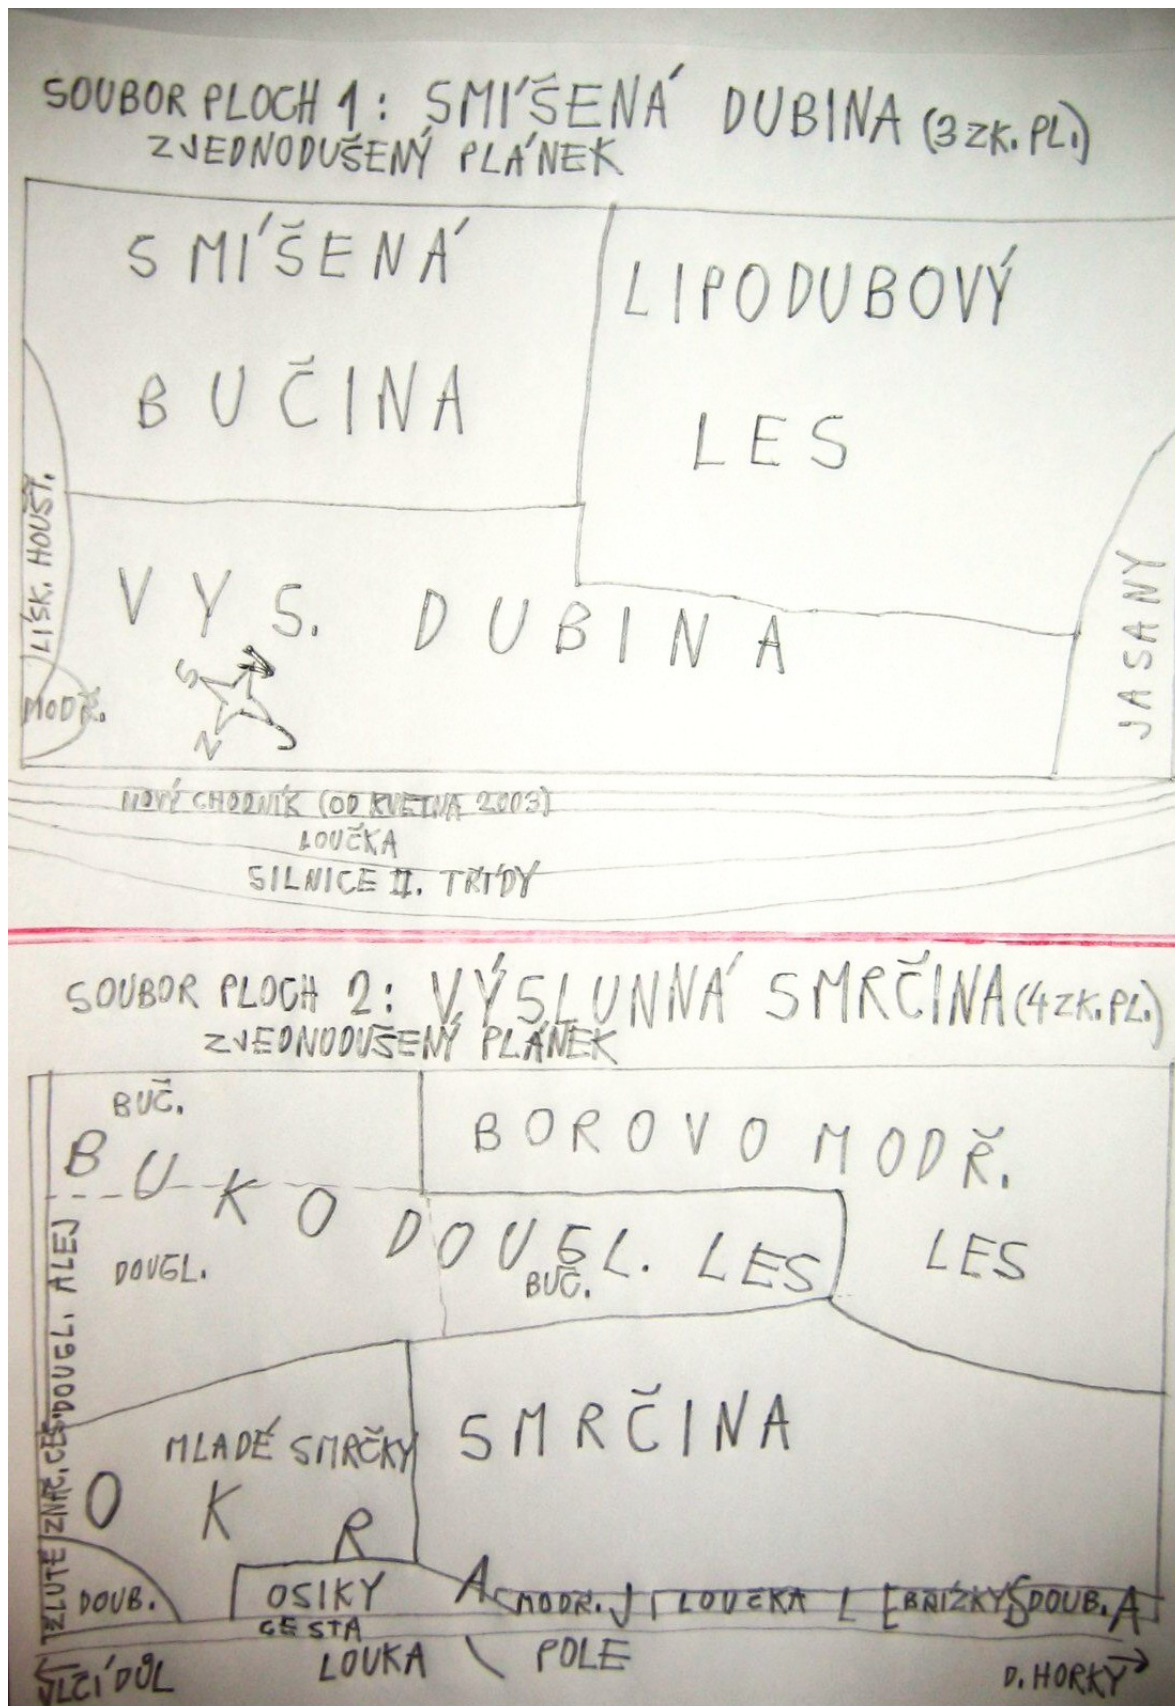 SOUBOR PLOCH 1: SMÍŠENÁ DUBINA (3 ZK. PL.)
ZJEDNODUŠENÝ PLÁNEK
SMÍŠENÁ
BUČINA
LIPODUBOVÝ
LES
LÍSK. HOUŠT.
VYS. DUBINA
JASANY
MODŘ.
S
V
Z
J
NOVÝ CHODNÍK (OD KVĚTNA 2003)
LOUČKA
SILNICE II. TŘÍDY
SOUBOR PLOCH 2: VÝSLUNNÁ SMRČINA (4 ZK. PL.)
ZJEDNODUŠENÝ PLÁNEK
BUČ.
BUKODOUGL. LES
BOROVOMODŘ.
LES
DOUGL.
BUČ.
DOUGL. ALEJ
ŽLUTĚ ZNAČ. CES.
MLADÉ SMRČKY
SMRČINA
OKRAJ LESA
DOUB.
OSIKY
MODŘ.
LOUČKA
BŘÍZKY
DOUB.
CESTA
LOUKA \ POLE
VLČÍ DŮL
D. HORKY